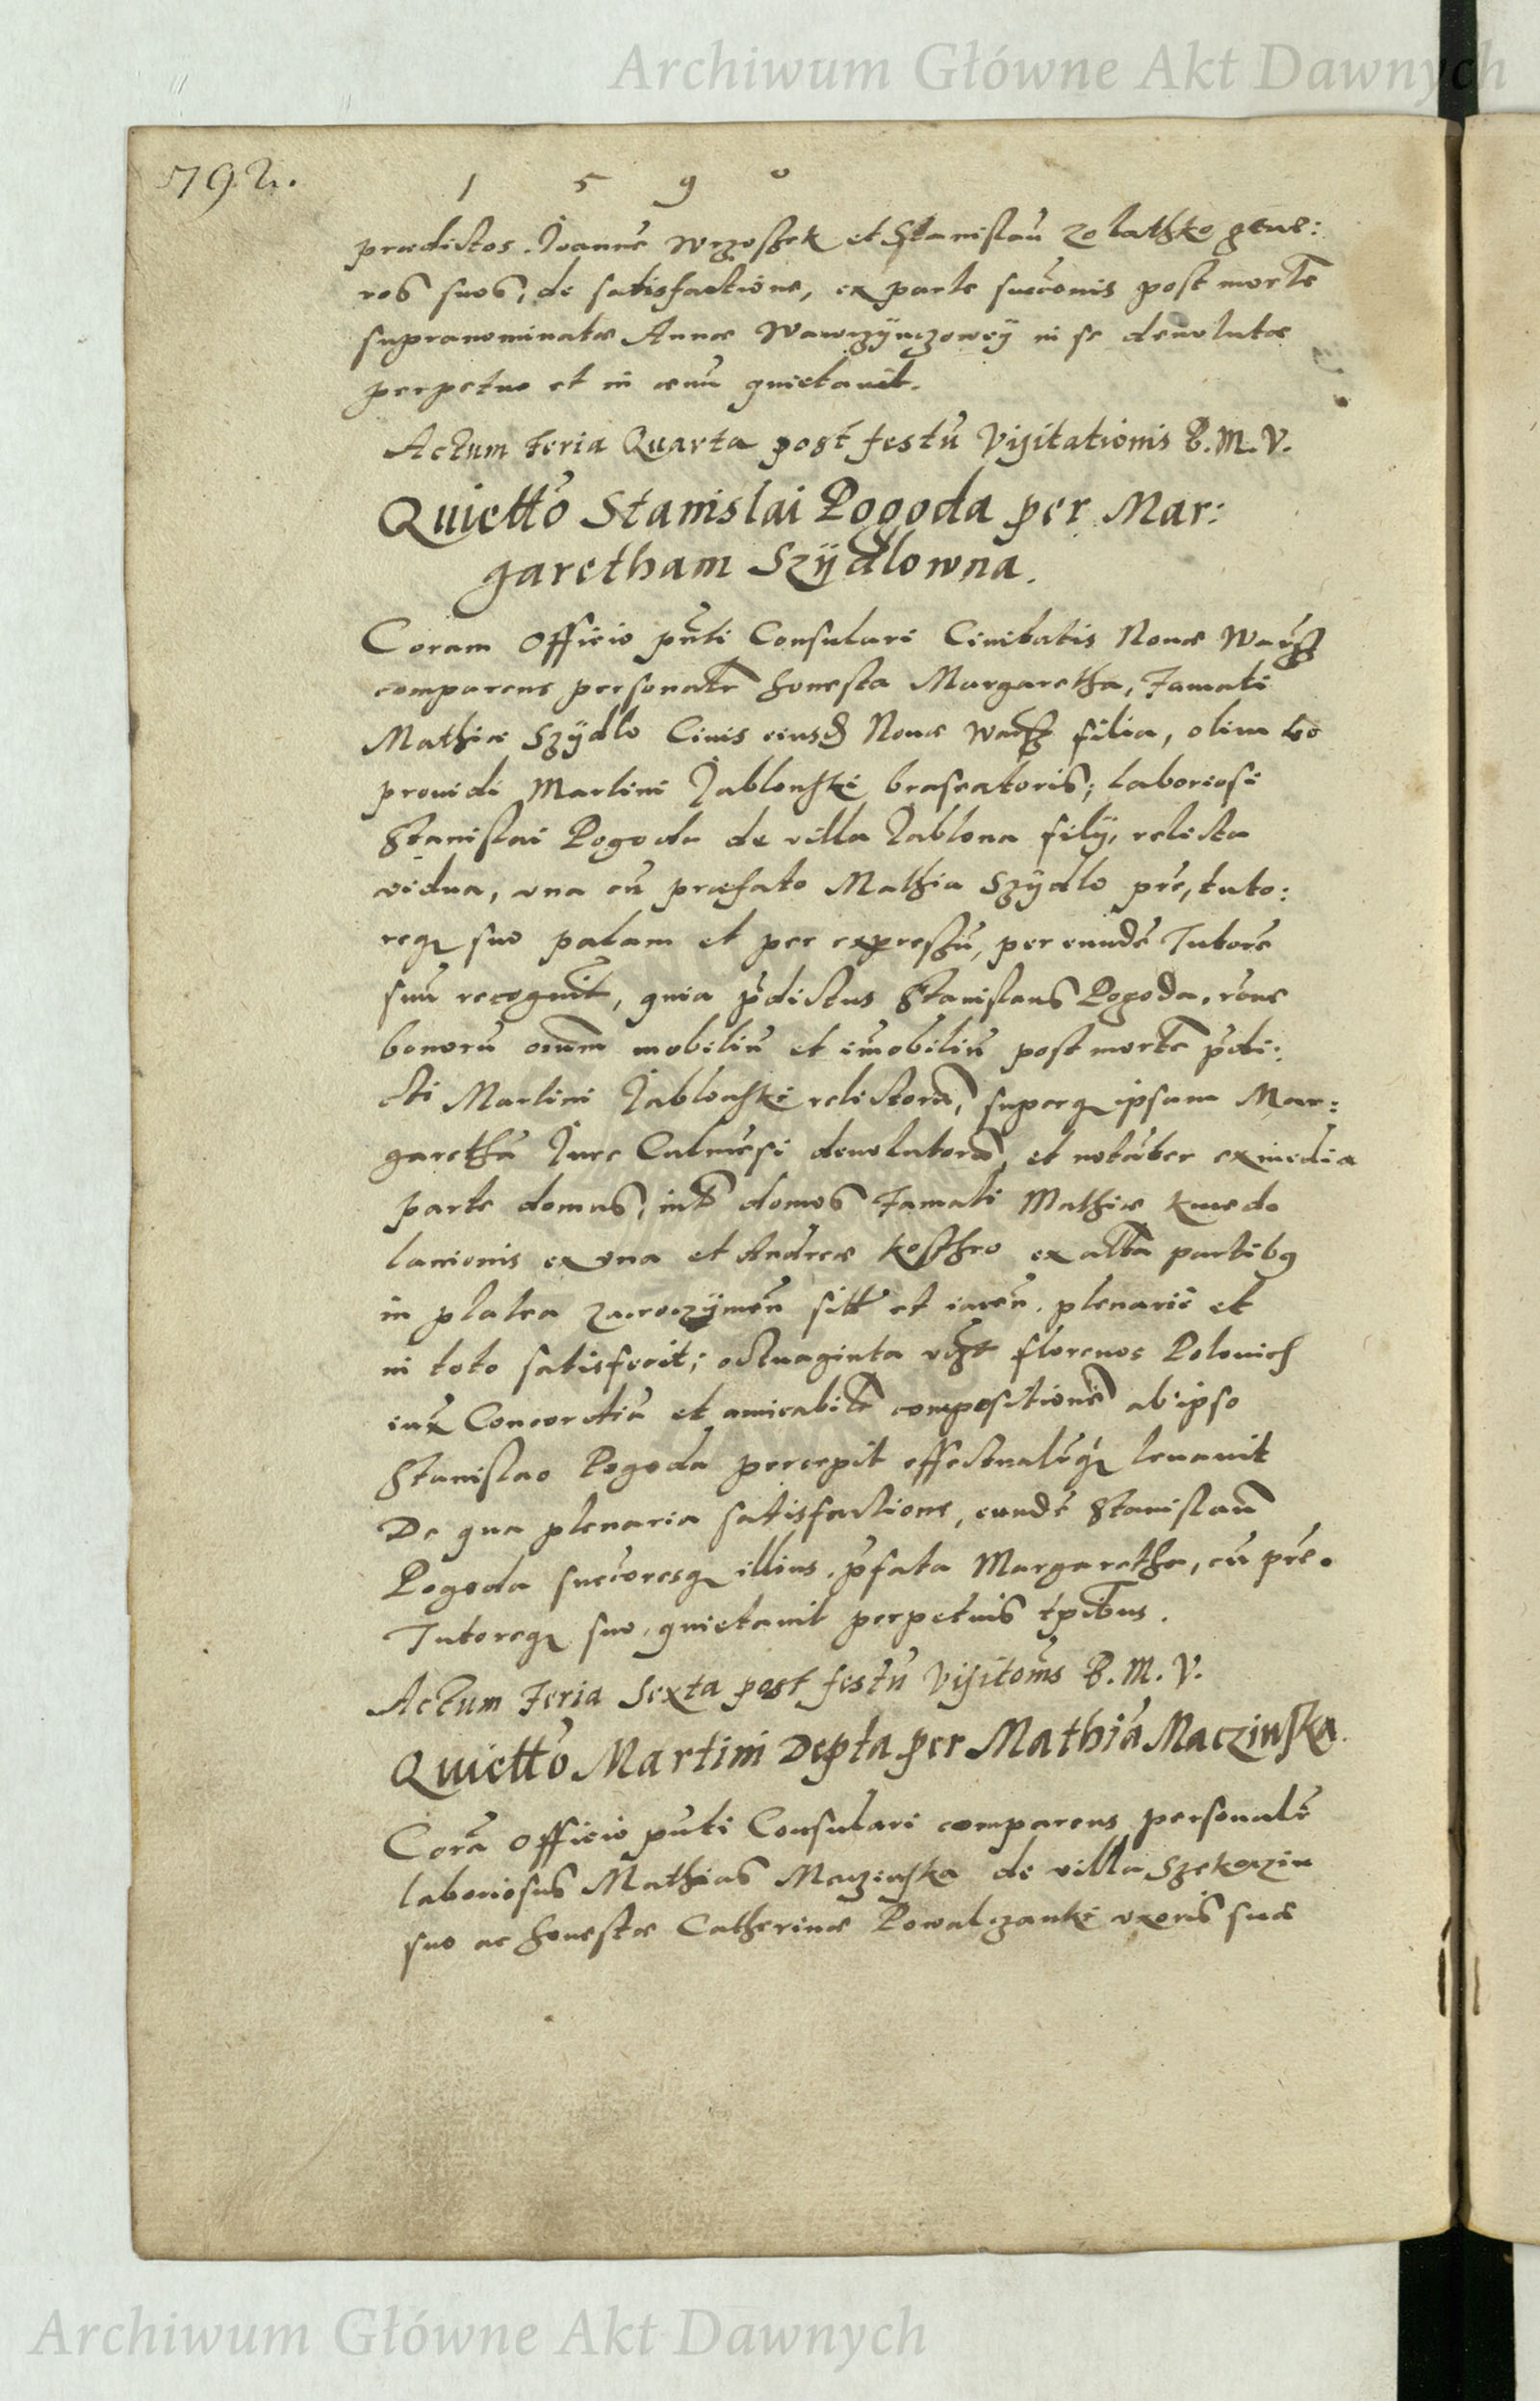 Archiwum Główne Akt Dawnych
792.
1 5 9 0
prædictos Joanne Wrzoszek et Stanislaũ Zolathko gene:
ros suos, de satisfactione, ex parte succonis post mortẽ
supranominatæ Annæ Wawrzÿnczoweÿ in se deuolutæ
perpetuo et in æuũ quietauit.
Actum Feria Quarta post festũ Visitationis B. M. V.
Quietto Stanislai Pogoda per Mar:
garetham Szÿdlowna.
Coram Officio pñti Consulari Ciuitatis Nouæ Warsz
comparens personalr honesta Margaretha, Famati
Mathiæ Szÿdlo Ciuis eiusd Nouæ Warsz filia, olim vo
prouidi Martini Jablonski braseatoris, laboriosi
Stanislai Pogoda de villa Jablona filÿ, relicta
vidua, vna cũ præfato Mathia Szÿdlo pre, tuto:
req suo palam et per expressũ, per eundẽ Tutorẽ
suũ recognuit, quia pdictus Stanislaus Pogoda, rõne
bonorũ oium mobiliũ et imobiliũ post mortẽ pdi:
cti Martini Jablonski relictorũ, superq ipsam Mar:
garethã Jure Culmẽsi deuolutorũ, et notãter ex media
parte domus, intr domos Famati Mathiæ Kmedo
lanionis ex vna et Andreæ Kosthro ex altra partibq
in platea Zacroczÿmen sitt et iacen. plenariẽ et
in toto satisfecit; octuaginta vzt florenos Polonich
iux Concordiã et amicabilẽ compositionẽ ab ipso
Stanislao Pogoda percepit effectualrq leuauit
De qua plenaria satisfactione, eundẽ Stanislaũ
Pogoda succoresq illius pfata Margaretha, cũ pre.
Tutoreq suo, quietauit perpetuis tpibus.
Actum Feria Sexta post festũ Visitonis B. M. V.
Quietto Martini Depta per Mathiã Maczinska.
Corã Officio pñti Consulari comparens personalr
laboriosus Mathias Maczinska de villa Szekoczin
suo ac honestæ Catherinæ Powalczanki vxoris suæ
Archiwum Główne Akt Dawnych